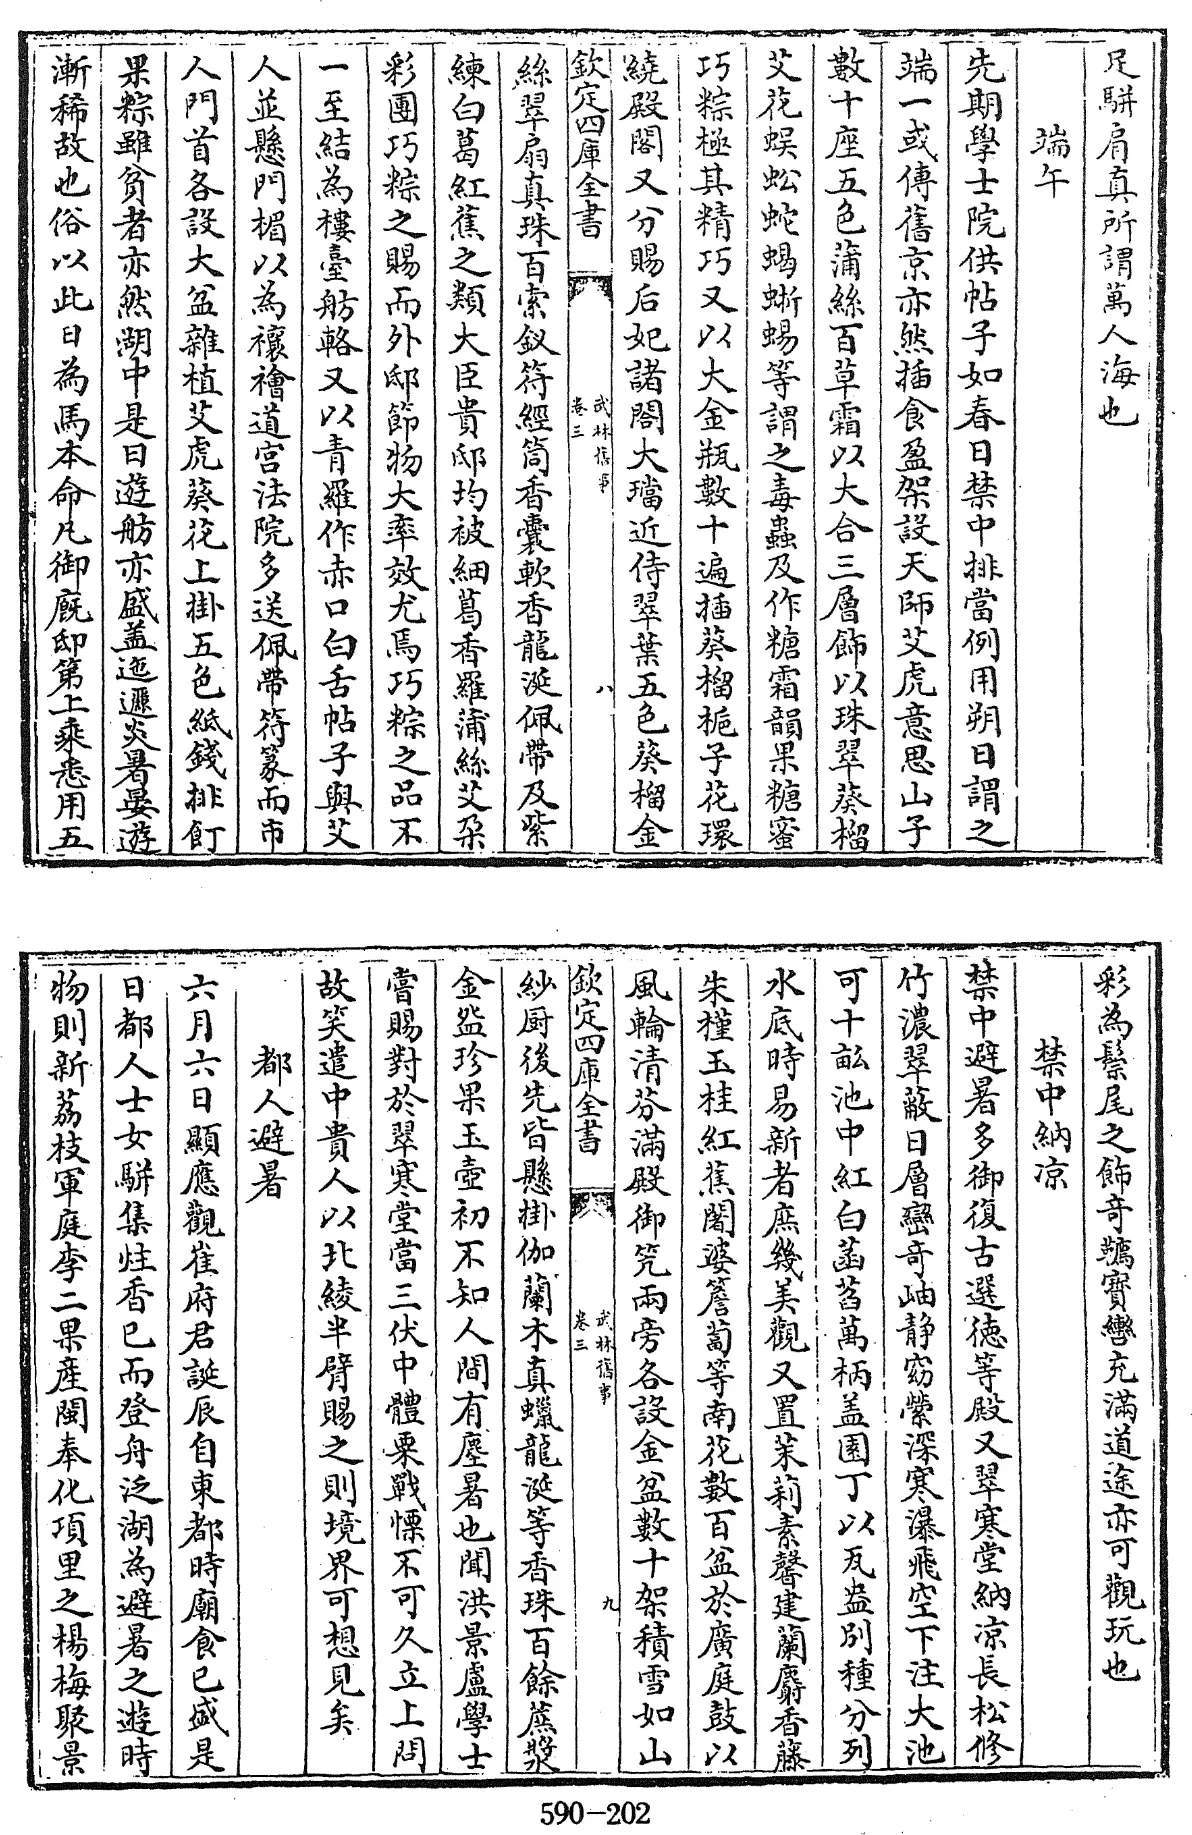 足駢肩真所謂萬人海也
端午
先期學士院供帖子如春日禁中排當例用朔日謂之
端一或傳舊京亦然插食盈架設天師艾虎意思山子
數十座五色蒲絲百草霜以大合三層飾以珠翠葵榴
艾花蜈蚣蛇蝎蜥蜴等謂之毒蟲及作糖霜韻果糖蜜
巧粽極其精巧又以大金瓶數十遍插葵榴梔子花環
繞殿閣又分賜后妃諸閣大璫近侍翠葉五色葵榴金
欽定四庫全書
武林舊事
卷三
八
絲翠扇真珠百索釵符經筒香囊軟香龍涎佩帶及紫
練白葛紅蕉之類大臣貴邸均被細葛香羅蒲絲艾朶
彩團巧粽之賜而外邸節物大率效尤焉巧粽之品不
一至結為樓臺舫輅又以青羅作赤口白舌帖子與艾
人並懸門楣以為禳禬道宮法院多送佩帶符篆而市
人門首各設大盆雜植艾虎葵花上掛五色紙錢排飣
果粽雖貧者亦然湖中是日遊舫亦盛盖迤邐炎暑晏遊
漸稀故也俗以此日為馬本命凡御廐邸第上乘悉用五
彩為鬃尾之飾奇韀寶轡充滿道途亦可觀玩也
禁中納凉
禁中避暑多御復古選徳等殿又翠寒堂納凉長松修
竹濃翠蔽日層巒奇岫静窈縈深寒瀑飛空下注大池
可十畝池中紅白菡萏萬柄盖園丁以瓦盎別種分列
水底時易新者庶幾美觀又置茉莉素馨建蘭麝香藤
朱槿玉桂紅蕉闍婆簷蔔等南花數百盆於廣庭鼓以
風輪清芬滿殿御笐兩旁各設金盆數十架積雪如山
欽定四庫全書
武林舊事
卷三
九
紗厨後先皆懸掛伽蘭木真蠟龍涎等香珠百餘蔗漿
金盌珍果玉壺初不知人間有塵暑也聞洪景盧學士
嘗賜對於翠寒堂當三伏中體粟戰慄不可久立上問
故笑遣中貴人以北綾半臂賜之則境界可想見矣
都人避暑
六月六日顯應觀崔府君誕辰自東都時廟食已盛是
日都人士女駢集炷香已而登舟泛湖為避暑之遊時
物則新荔枝軍庭李二果產閩奉化項里之楊梅聚景
590-202